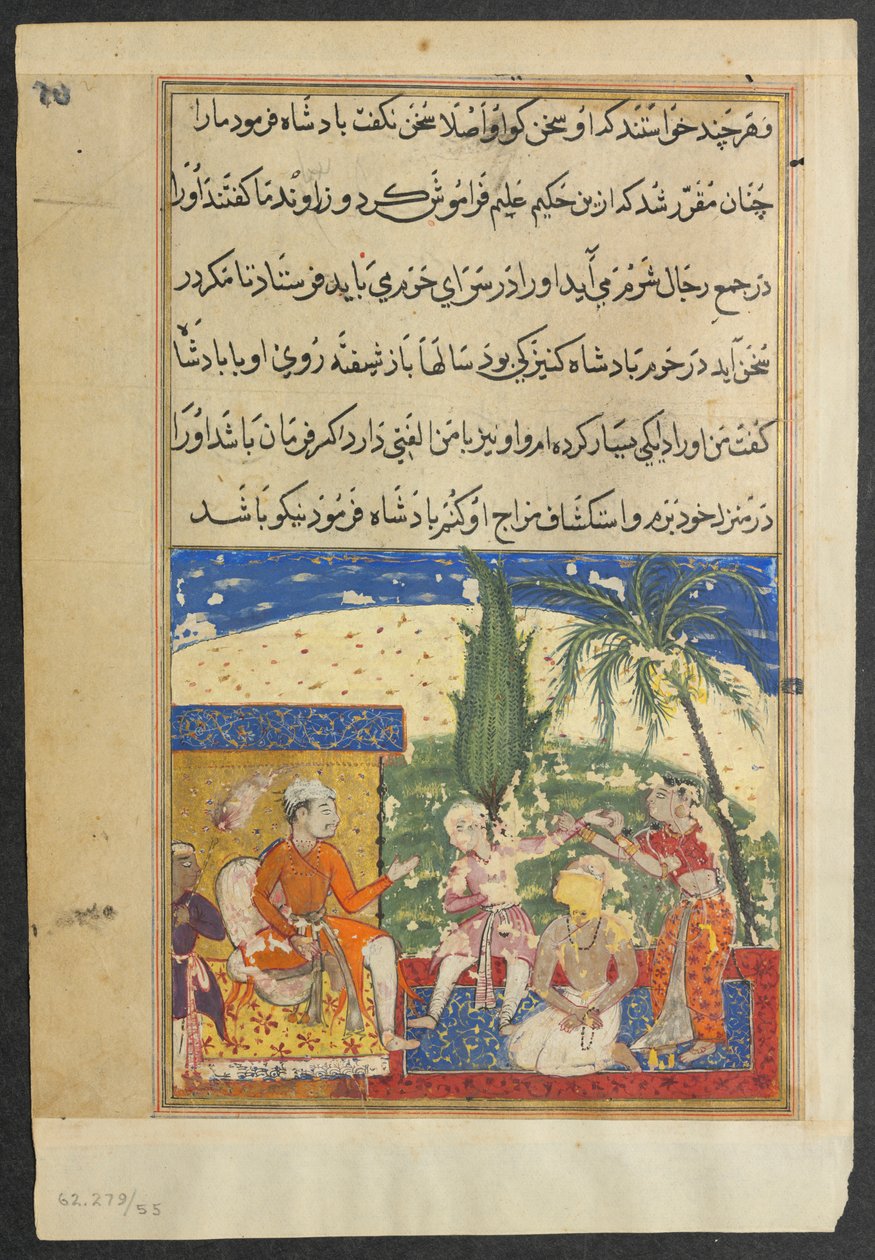 وهر چند خواستند که او سخن کو او اصلا سخن نکفت بادشاه فرمود مارا
چنان مقرر شد که ازین حکیم علیم فراموش کرد و زاوند ما کفتند اورا
در جمع رجال شرم می آید اورا در سرای حرم می باید فرستاد تا مکر در
سخن آید در حرم بادشاه کنیزکی بود سالها باز شیفته روی او با بادشاه
کفت من اورا دلیکی بسیار کرده ام و او نیز با من الفتی دارد اکر فرمان باشد اورا
در منزل خود برم و استکشاف مزاج او کنم بادشاه فرمود نیکو باشد
62.279/55